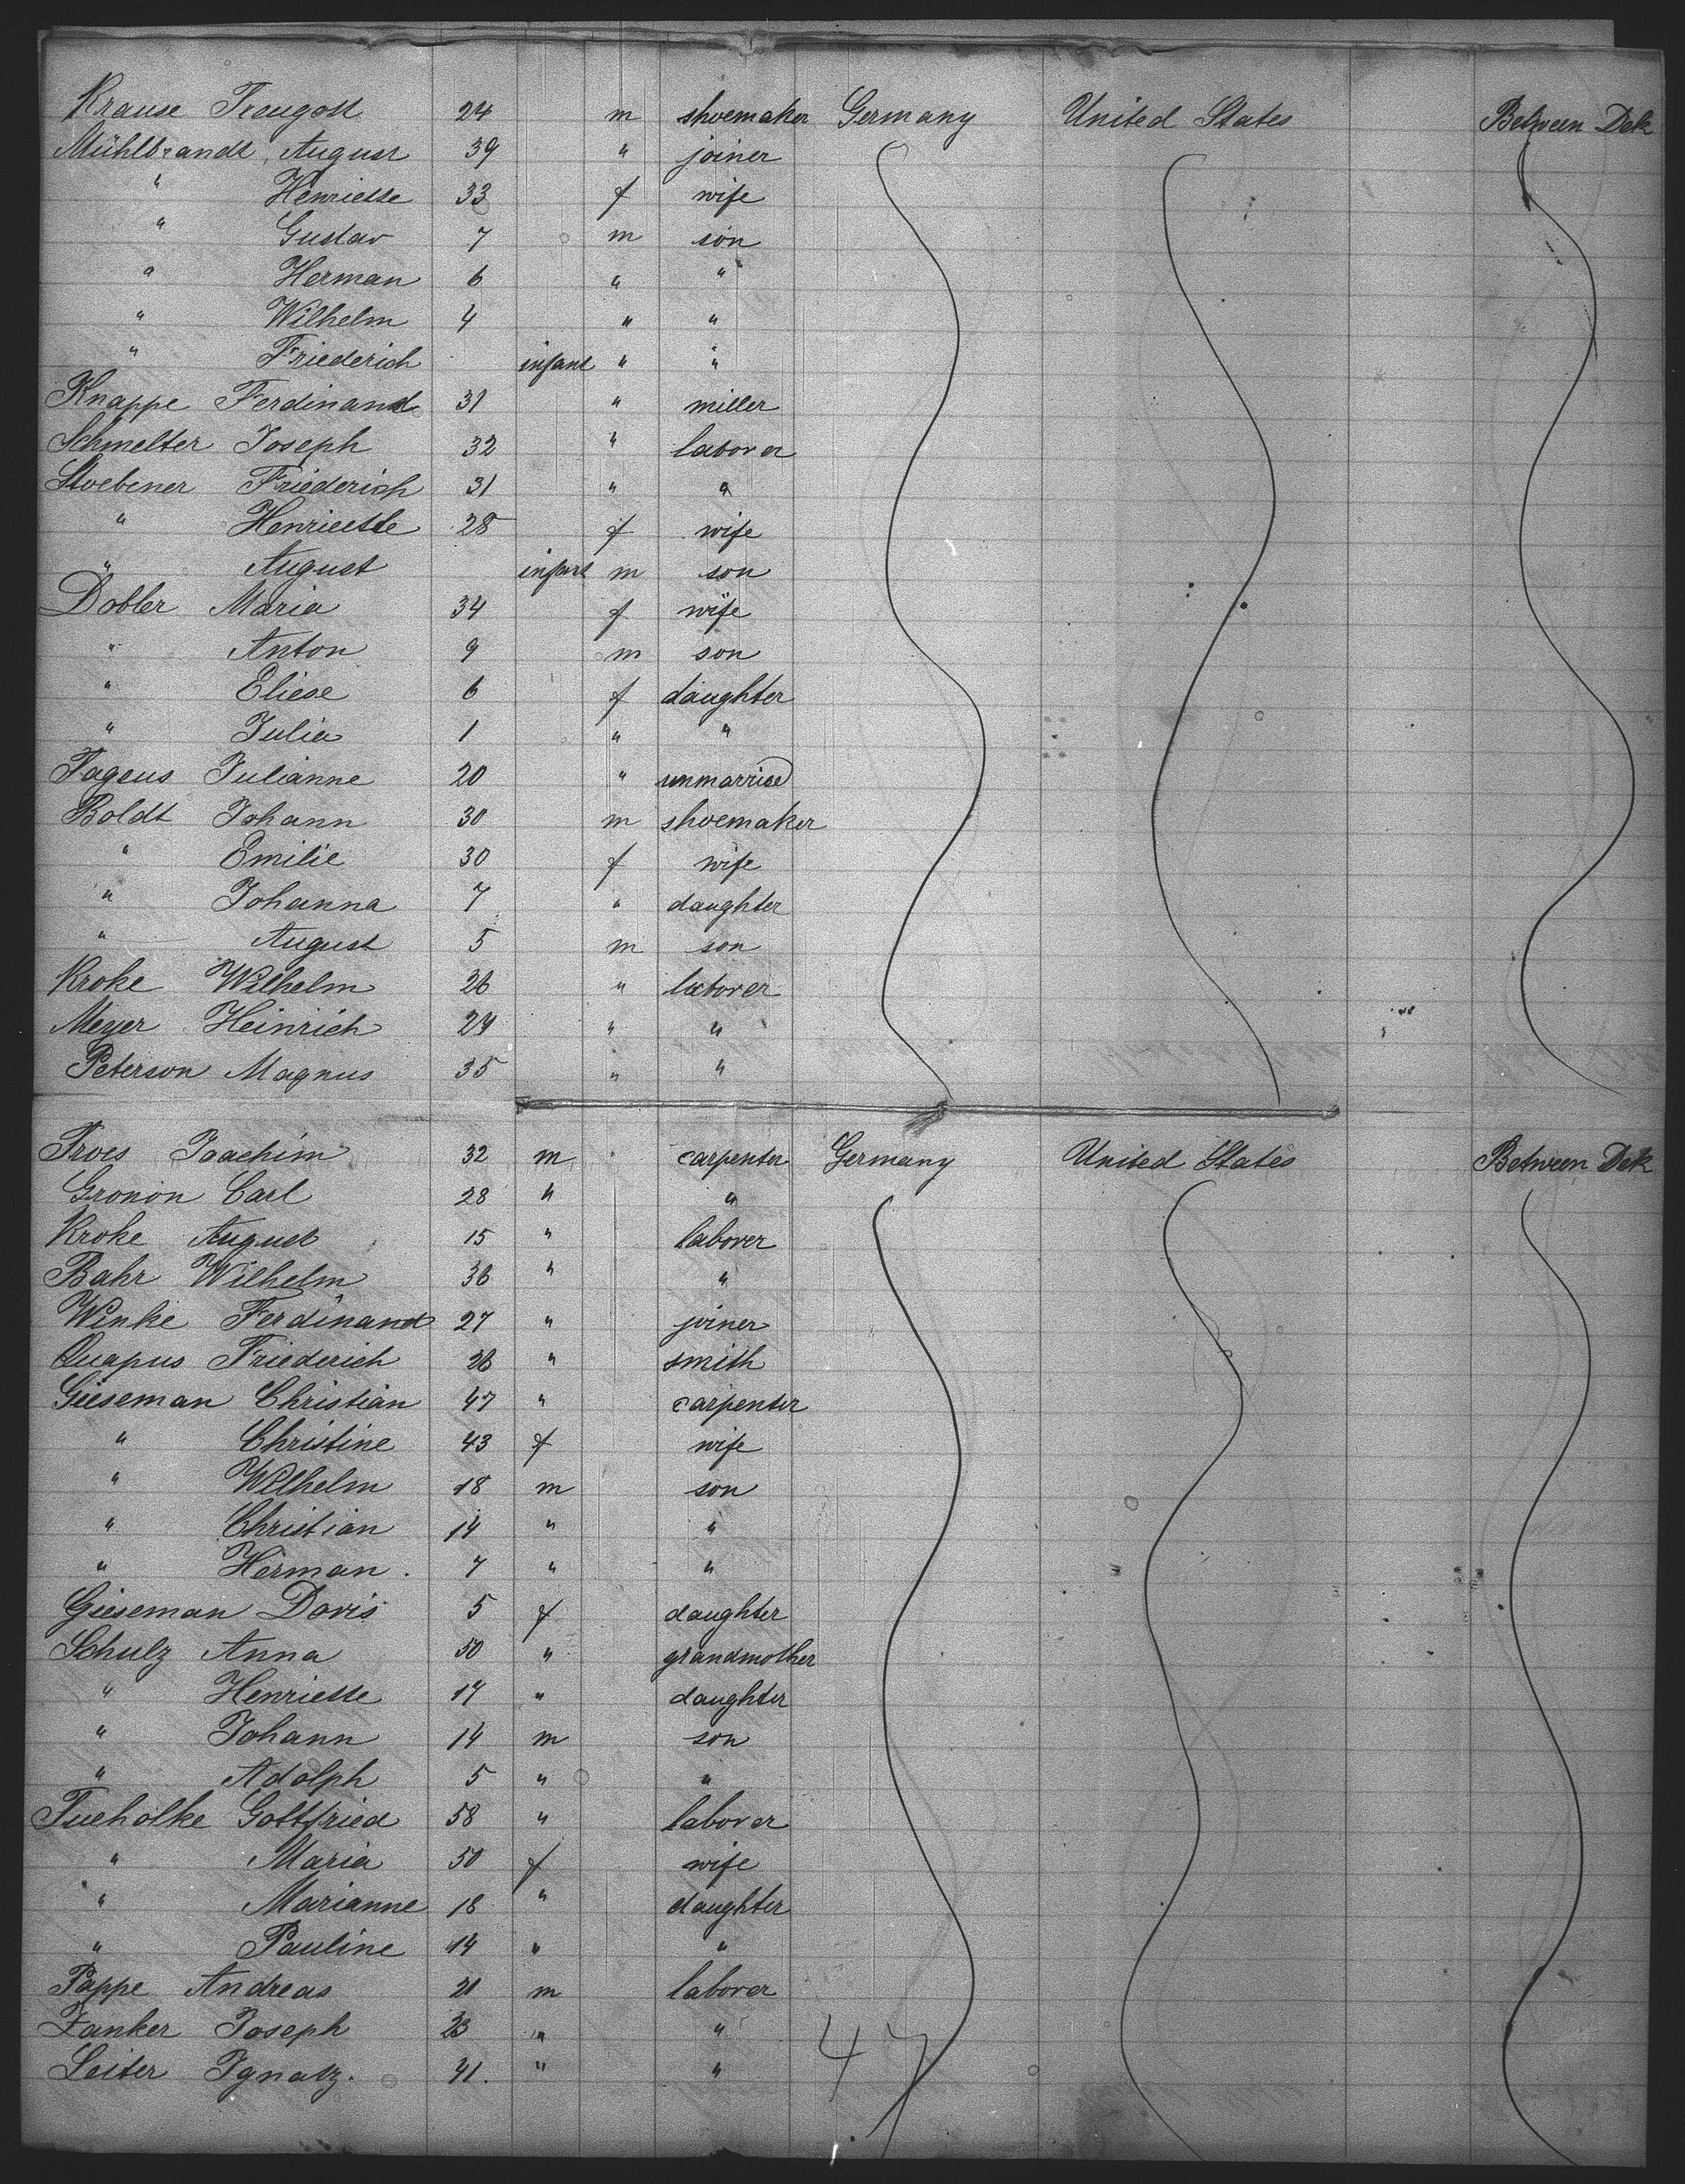 Krause Traugott 24 m shoemaker Germany United States Between Dek
Mühlbrandt, August 39 " joiner
" Henriette 33 f wife
" Gustav 7 m son
" Herman 6 " "
" Wilhelm 4 " "
" Friederich infant " "
Knappe Ferdinand 31 " miller
Schmelter Joseph 32 " laborer
Stoebener Friederich 31 " "
" Henriette 28 f wife
" August infant m son
Dobler Maria 34 f wife
" Anton 9 m son
" Eliese 6 f daughter
" Julia 1 " "
Fageus Julianne 20 " unmarried
Boldt Johann 30 m shoemaker
" Emilie 30 f wife
" Johanna 7 " daughter
" August 5 m son
Kroke Wilhelm 26 " laborer
Meyer Heinrich 24 " "
Peterson Magnus 35 " "
Troes Joachim 32 m carpenter Germany United States Between Dek
Gronon Carl 28 " "
Kroke August 15 " laborer
Bahr Wilhelm 36 " "
Winke Ferdinand 27 " joiner
Quapus Friederich 26 " smith
Gieseman Christian 47 " carpenter
" Christine 43 f wife
" Wilhelm 18 m son
" Christian 14 " "
" Herman. 7 " "
Gieseman Doris 5 f daughter
Schulz Anna 50 " grandmother
" Henriette 17 " daughter
" Johann 14 m son
" Adolph 5 " "
Tueholke Gottfried 58 " laborer
" Maria 50 f wife
" Marianne 18 " daughter
" Pauline 14 " "
Pappe Andreas 21 m laborer
Zanker Joseph 23 " "
Leiter Ignatz. 41. " "
47